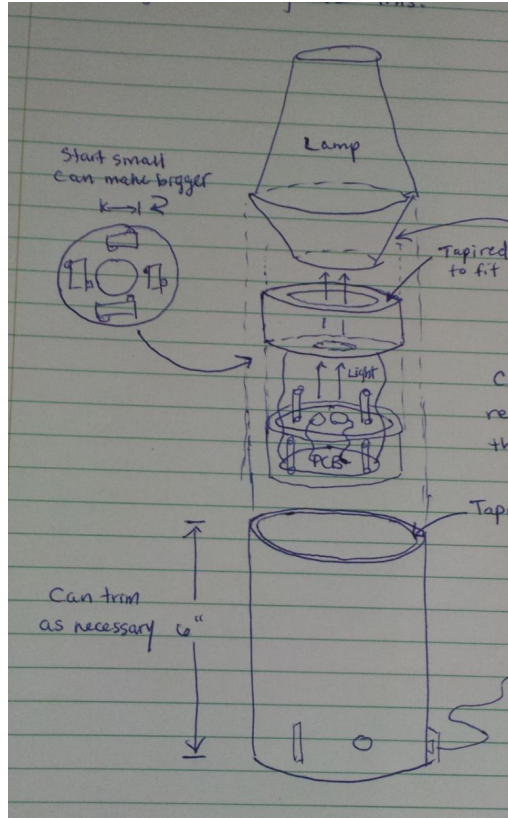 this.
Lamp
Start small
Can make bigger
Tapired
to fit
Light
C
re
th
PCB
Tap
Can trim
as necessary 6"